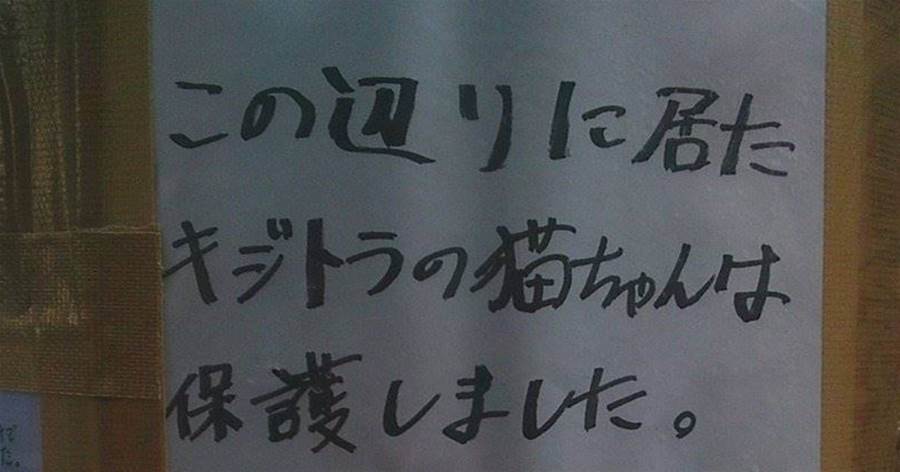 この辺りに居た
キジトラの猫ちゃんは
保護しました。